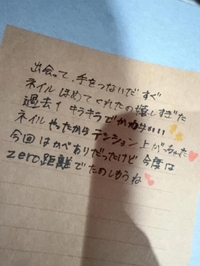 出会って、手をつないだ すぐ
ネイル ほめてくれたの嬉しすぎた
過去1 キラキラでかわいい!!!
ネイル やったからテンション上がっちゃた
今回はかべありだったけど 今度は
zero距離でたのしもうね